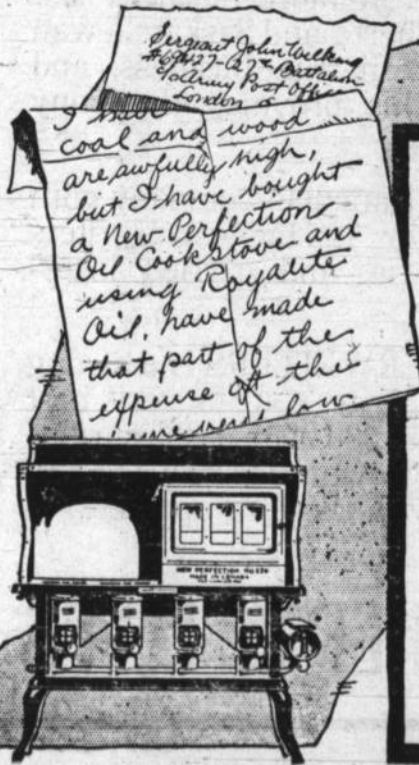 Sergeant John Wilkins
#69427-27th Battalion
c/o Army Post Office
London
I
coal and wood
are awfully high,
but I have bought
a New Perfection
Oil Cookstove and
using Royalite
Oil, have made
that part of the
expense of the
home very low
NEW PERFECTION
MADE IN CANADA